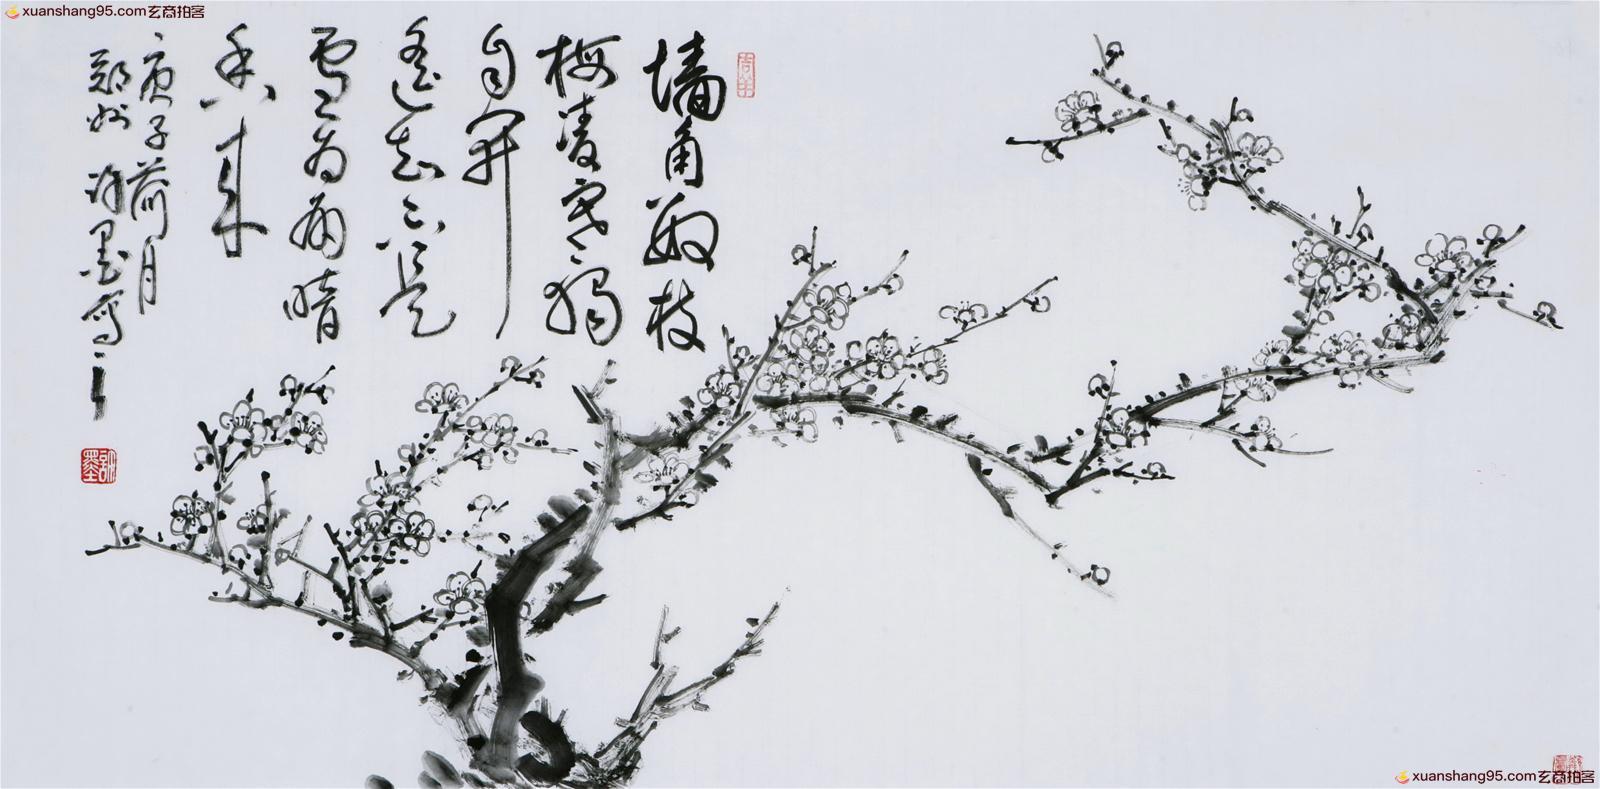 xuanshang95.com玄商拍客
墙角数枝
梅凌寒独
自开
遥知不是
雪为有暗
香来
庚子荷月
郑州 许墨写
許墨
xuanshang95.com玄商拍客